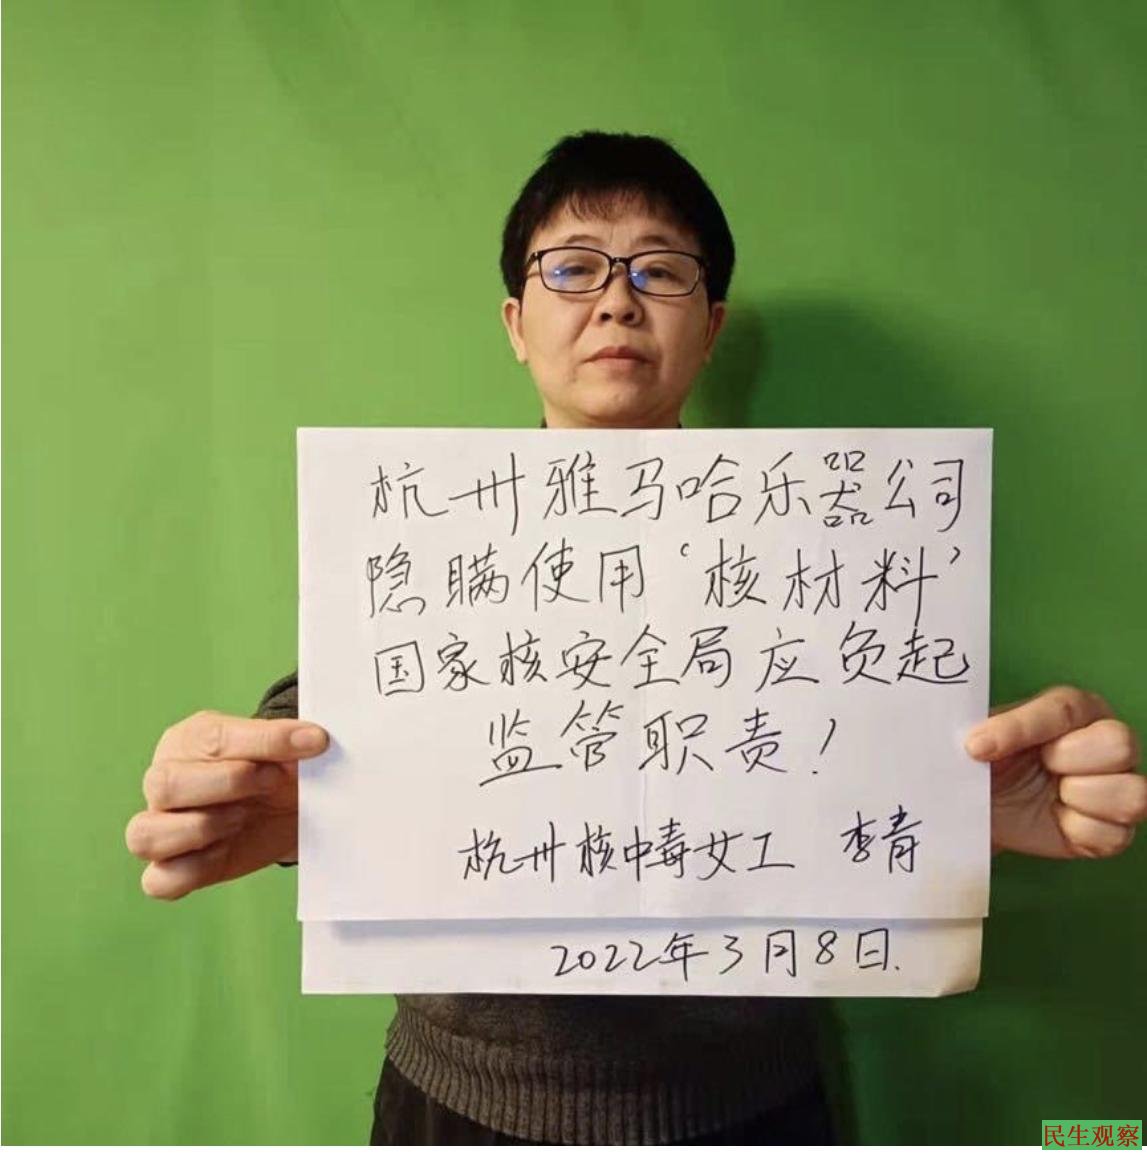 杭州雅马哈乐器公司
隐瞒使用‘核材料’
国家核安全局应负起
监管职责！
杭州核中毒女工 李青
2022年3月8日.
民生观察